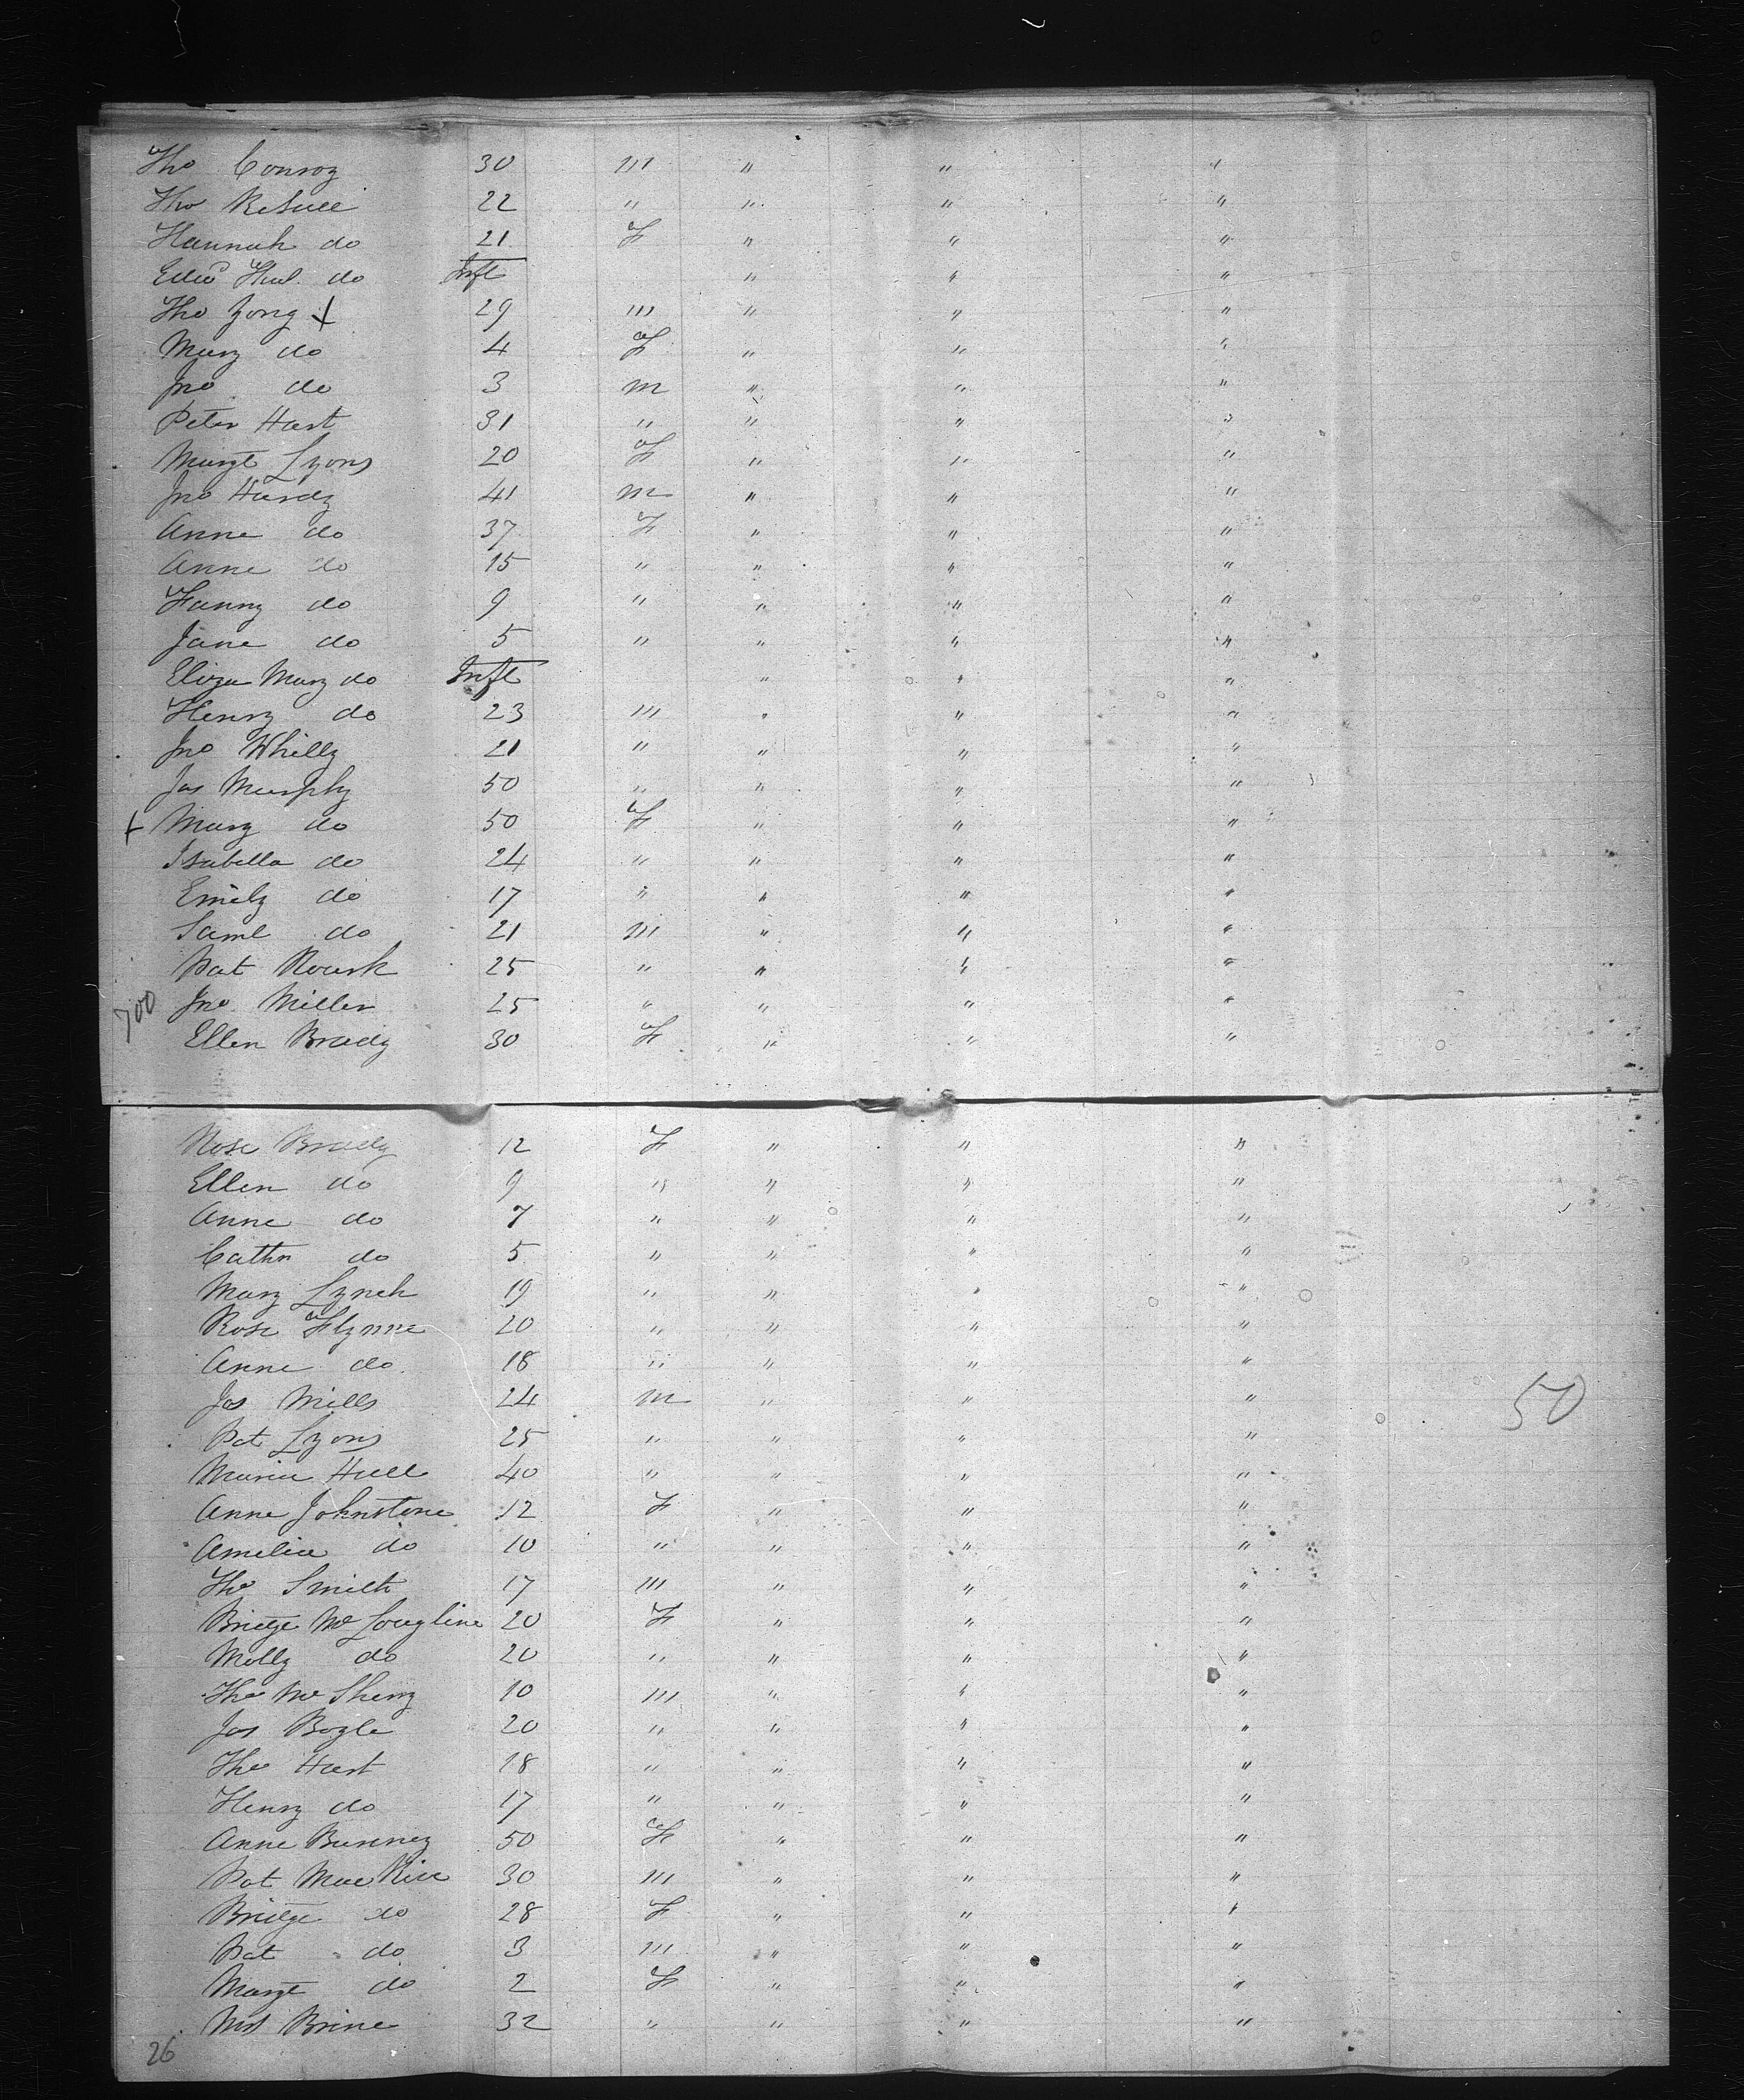 Tho Conroy 30 m " " "
Tho 22 " " " "
Hannah do 21 F " " "
Edwd do Inft " " "
Tho Yong x 29 m " " "
Mary do 4 F " " "
Jno do 3 m " " "
Peter Hart 31 " " " "
Margt Lyons 20 F " " "
Jno Hardy 41 m " " "
Anne do 37 F " " "
Anne do 15 " " " "
Fanny do 9 " " " "
Jane do 5 " " " "
Eliza Mary do Inft " " "
Henry do 23 m " " "
Jno Whilly 21 " " " "
Jas Murphy 50 " " " "
x Mary do 50 F " " "
Isabella do 24 " " " "
Emily do 17 " " " "
Saml do 21 m " " "
Pat Rourk 25 " " " "
700 Jno Miller 25 " " " "
Ellen Brady 30 F " " "
Rose Brady 12 F " " "
Ellen do 9 " " " "
Anne do 7 " " " "
Cathn do 5 " " " "
Mary Lynch 19 " " " "
Rose Flynne 20 " " " "
Anne do 18 " " " "
Jos Mills 24 m " " " 50
Pat Lyons 25 " " " "
Maria Hull 40 " " " "
Anne Johnstone 12 F " " "
Amelia do 10 " " " "
Tho Smith 17 m " " "
Bridge Mc Lougline 20 F " " "
Molly do 20 " " " "
Tho Mc Sherry 10 m " " "
Jas Boyle 20 " " " "
Tho Hart 18 " " " "
Henry do 17 " " " "
Anne Bunney 50 F " " "
Pat 30 m " " "
Bridge do 28 F " " "
Pat do 3 m " " "
Margt do 2 F " " "
Mrs Brine 32 " " " "
26